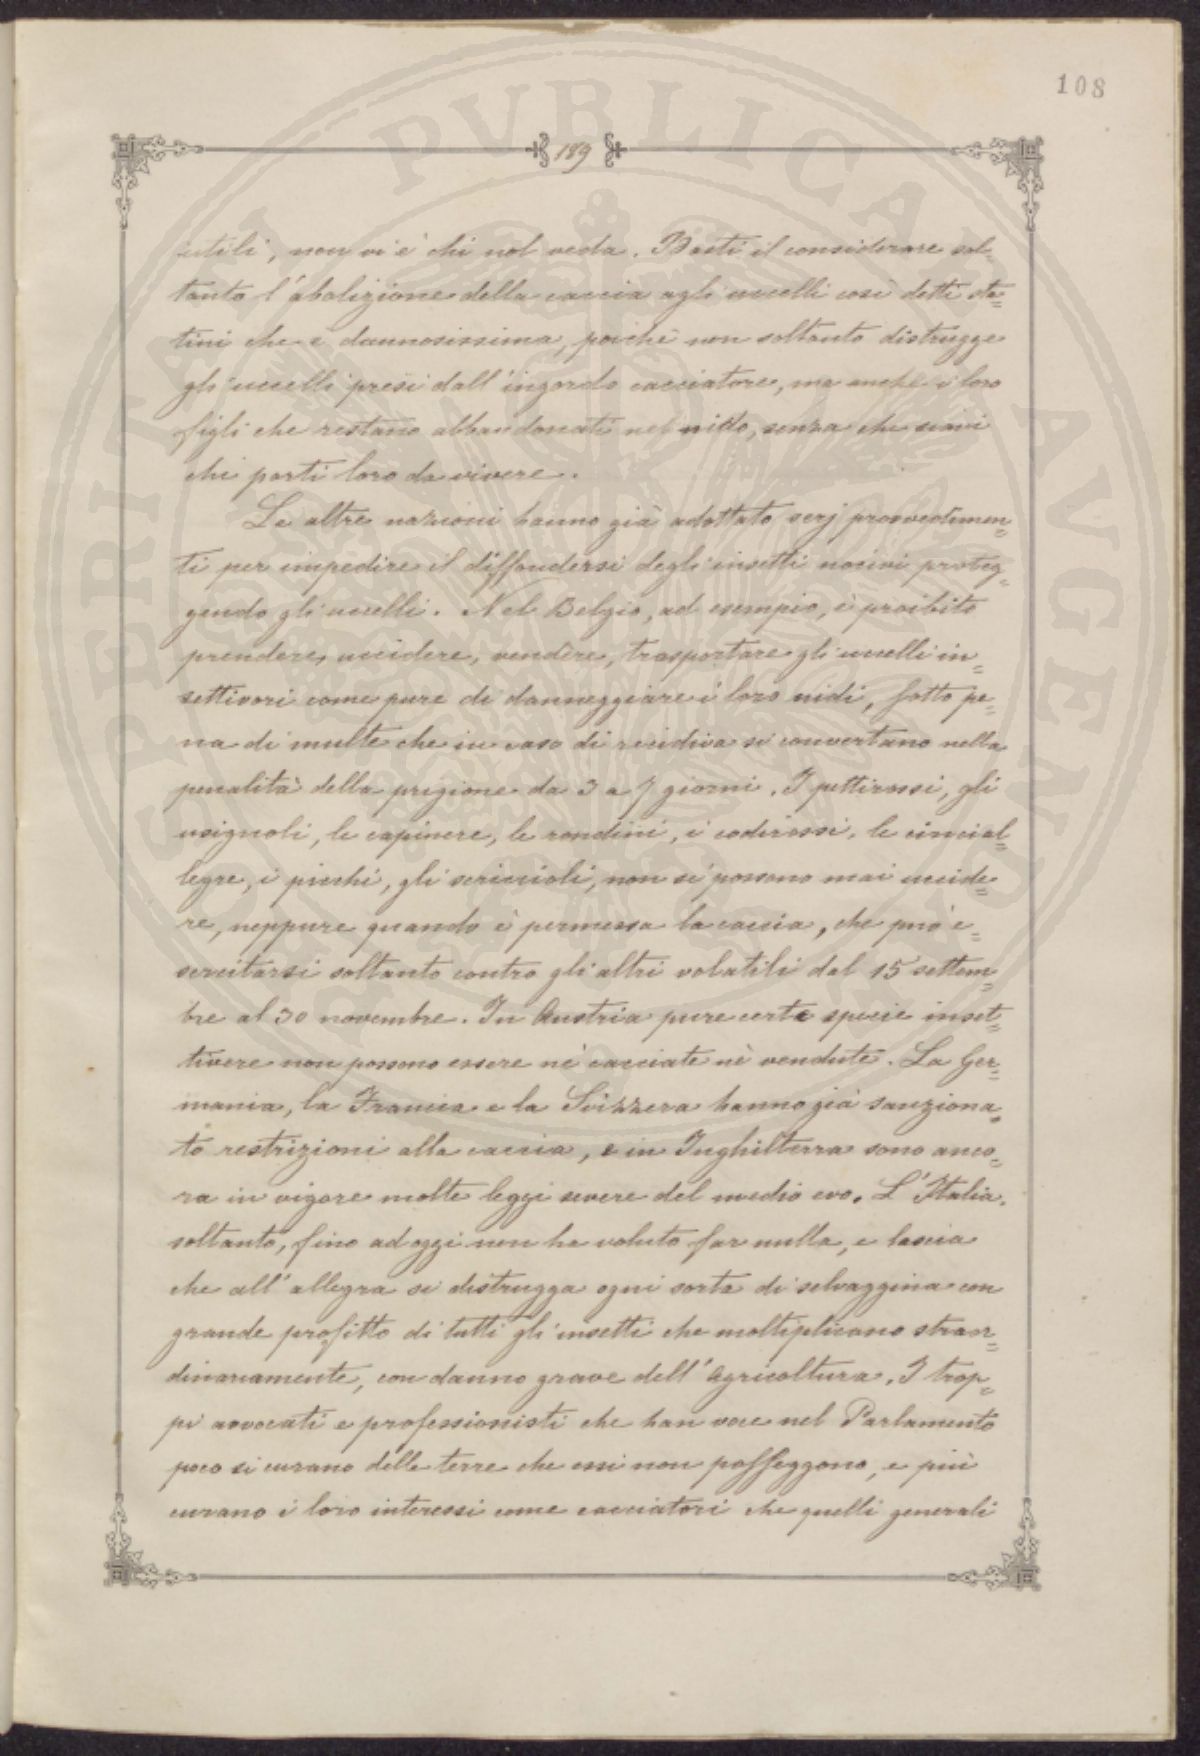 108
189
utili, non vi è chi nol veda. Basti il considerare sol-
tanto l'abolizione della caccia agli uccelli così detti sta=
tini che è dannosissima, poichè non soltanto distrugge
gli uccelli presi dall'ingordo cacciatore, ma anche i loro
figli che restano abbandonati nel nido, senza che siavi
chi porti loro da vivere.
Le altre nazioni hanno già adottato serj provvedimen=
ti per impedire il diffondersi degli insetti nocivi proteg=
gendo gli uccelli. Nel Belgio, ad esempio, è proibito
prendere, uccidere, vendere, trasportare gli uccelli in=
settivori come pure di danneggiare i loro nidi, sotto pe=
na di multe che in caso di recidiva si convertano nella
penalità della prigione da 3 a 7 giorni. I pettirossi, gli
usignoli, le capinere, le rondini, i codirossi, le cincial=
legre, i picchi, gli scriccioli, non si possono mai uccide=
re, neppure quando è permessa la caccia, che può e=
sercitarsi soltanto contro gli altri volatili dal 15 settem=
bre al 30 novembre. In Austria pure certe specie inset=
tivere non possono essere nè cacciate nè vendute. La Ger=
mania, la Francia e la Svizzera hanno già sanziona=
to restrizioni alla caccia, e in Inghilterra sono anco=
ra in vigore molte leggi severe del medio evo. L'Italia
soltanto, fino ad oggi non ha voluto far nulla, e lascia
che all'allegra si distrugga ogni sorta di selvaggina con
grande profitto di tutti gli insetti che moltiplicano straor=
dinariamente, con danno grave dell'Agricoltura. I trop=
pi avvocati e professionisti che han voce nel Parlamento
poco si curano delle terre che essi non posseggono, e più
curano i loro interessi come cacciatori che quelli generali